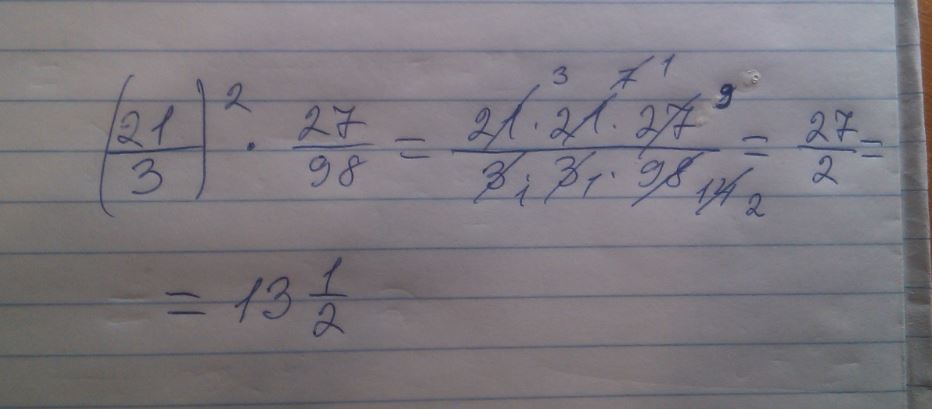 (21/3)² · 27/98 = 21 · 21 3 · 27 7 1 9 / 3 1 · 3 1 · 98 14 2 = 27/2 =
= 13 1/2